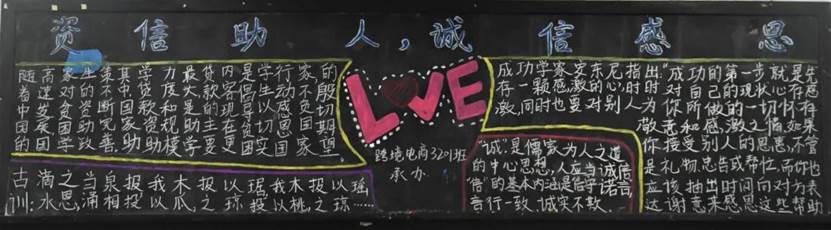 资信助人，诚信感恩
随着中国的
高速发展国
家对贫困学
生的资助政
策不断完善
其中国家助
学贷款资助
力度和规模
最大是助学
贷款的主要
内容现在更
是倡导贫困
学生以切实
行动感恩国
家不负国家
的殷切期望。
古训:滴水之恩,当涌泉相报 投我以木瓜,报之以琼琚 投我以木桃,报之以琼瑶……
LOVE
跨境电商3201班
承办
成功学家安东尼指出“成功的第一步就是先
存一颗感激的心,时时对自己的现状心存
感激,同时也要对别人为你所做的一切怀有
敬意和感激之情。如果
你接受别人的恩惠,不管
是礼物、忠告或帮忙,而你也
应该抽出时间向对方表
达谢意来感恩这些帮助
“诚”是儒家为人之道
的中心思想,人应当于诚信
“信”的基本内涵是信守诺言
言行一致,诚实不欺